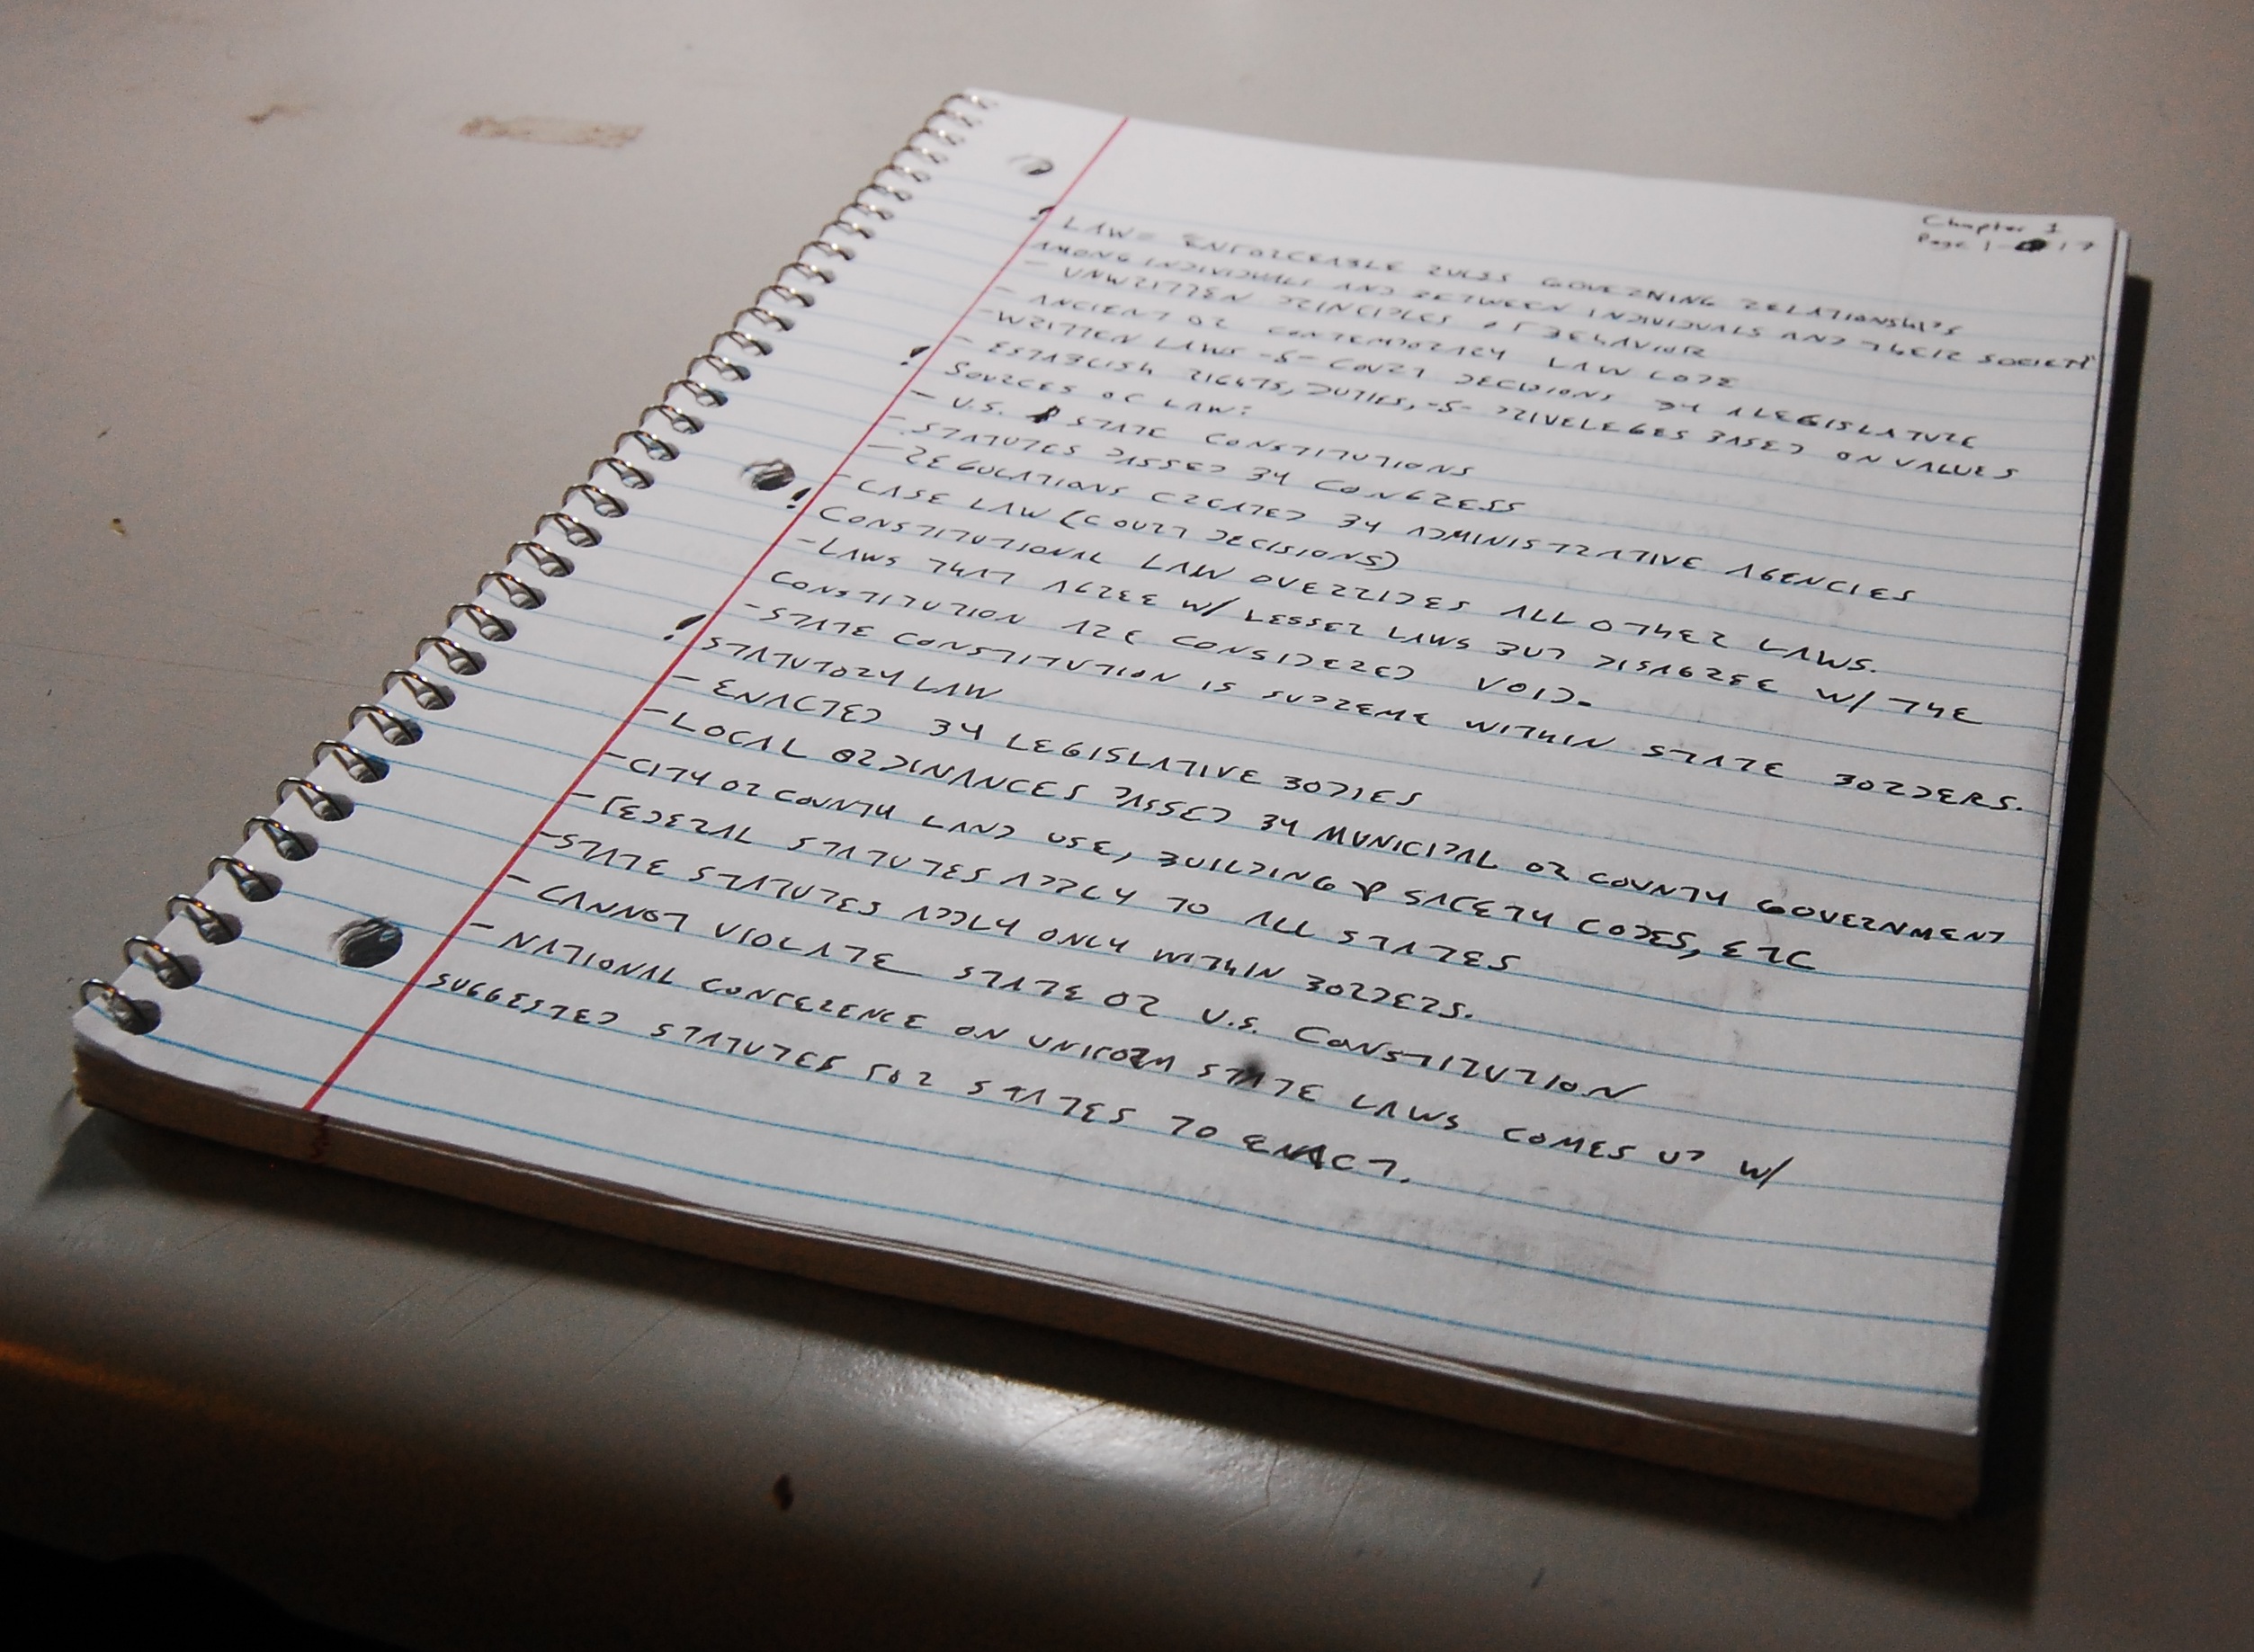 Chapter 1
Page 1-17
! LAW= ENFORCEABLE RULES GOVERNING RELATIONSHIPS
AMONG INDIVIDUALS AND BETWEEN INDIVIDUALS AND THEIR SOCIETY
- UNWRITTEN PRINCIPLES OF BEHAVIOR
- ANCIENT OR CONTEMPORARY LAW CODE
- WRITTEN LAWS -&- COURT DECISIONS BY A LEGISLATURE
- ESTABLISH RIGHTS, DUTIES, -&- PRIVELEGES BASED ON VALUES
! SOURCES OF LAW:
- U.S. & STATE CONSTITUTIONS
- STATUTES PASSED BY CONGRESS
- REGULATIONS CREATED BY ADMINISTRATIVE AGENCIES
- CASE LAW (COURT DECISIONS)
! CONSTITUTIONAL LAW OVERRIDES ALL OTHER LAWS.
- LAWS THAT AGREE W/ LESSER LAWS BUT DISAGREE W/ THE
CONSTITUTION ARE CONSIDERED VOID.
- STATE CONSTITUTION IS SUPREME WITHIN STATE BORDERS.
! STATUTORY LAW
- ENACTED BY LEGISLATIVE BODIES
- LOCAL ORDINANCES PASSED BY MUNICIPAL OR COUNTY GOVERNMENT
- CITY OR COUNTY LAND USE, BUILDING & SAFETY CODES, ETC
- FEDERAL STATUTES APPLY TO ALL STATES
- STATE STATUTES APPLY ONLY WITHIN BORDERS.
- CANNOT VIOLATE STATE OR U.S. CONSTITUTION
- NATIONAL CONFERENCE ON UNIFORM STATE LAWS COMES UP W/
SUGGESTED STATUTES FOR STATES TO ENACT.